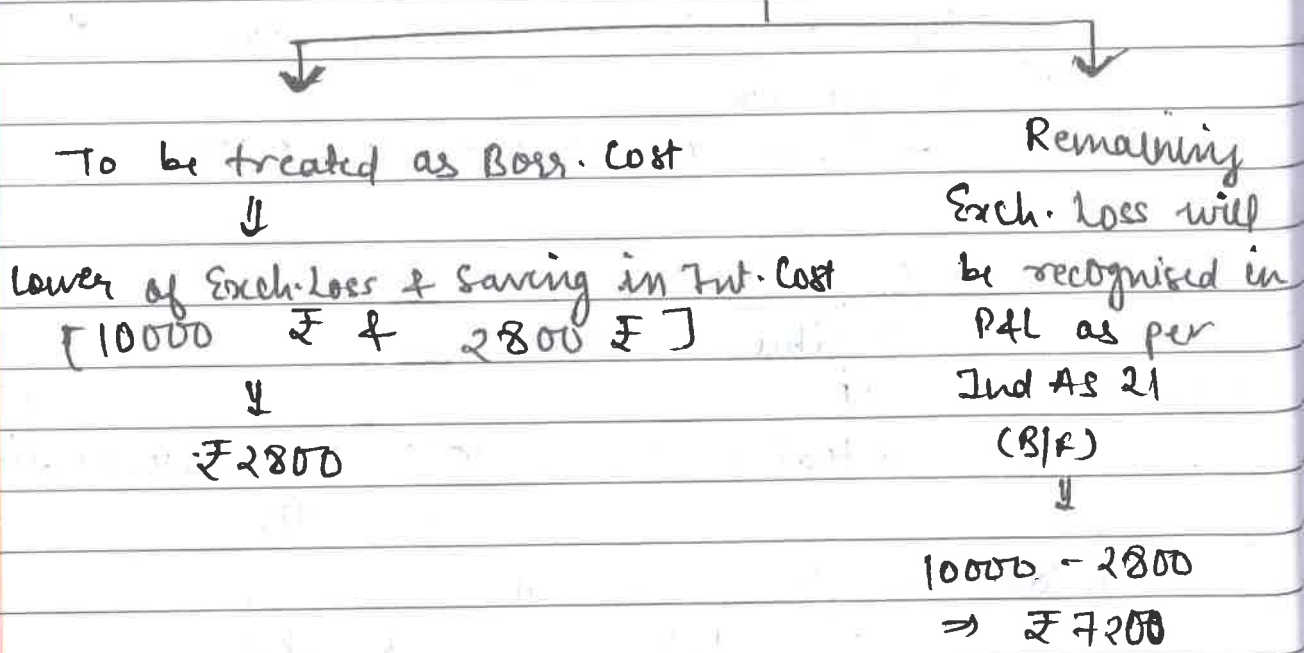 To be treated as Borr. Cost
⇓
Lower of Exch. Loss & Saving in Int. Cost
[10000 ₹ & 2800 ₹]
⇓
₹2800
Remaining
Exch. Loss will
be recognised in
P&L as per
Ind AS 21
(B/F)
⇓
10000 - 2800
⇒ ₹7200